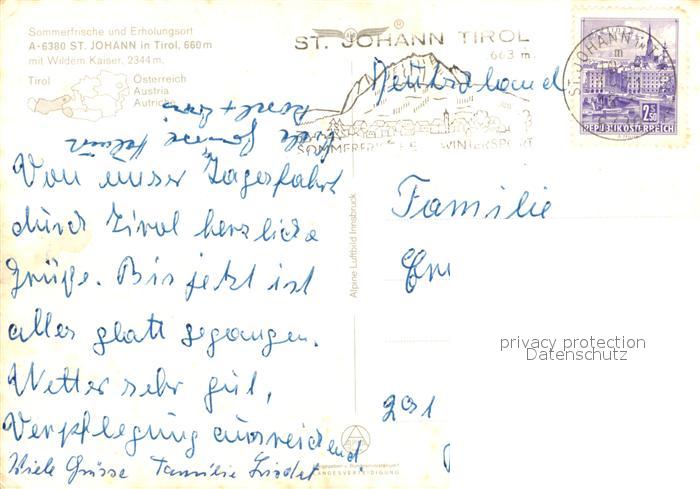 Sommerfrische und Erholungsort
A-6380 ST. JOHANN in Tirol, 660 m
mit Wildem Kaiser, 2344 m.
Tirol
Österreich
Austria
Autriche
ST. JOHANN TIROL
663 m.
SOMMERFRISCHE WINTERSPORT
ST. JOHANN IN
2S 50
REPUBLIK ÖSTERREICH
Deutschland
Von unser Tagesfahrt
durch Tirol herzliche
Grüße. Bis jetzt ist
alles glatt gegangen.
Wetter sehr gut,
Verpflegung ausreichend
Viele Grüsse Familie
Familie
291
Alpine Luftbild Innsbruck
privacy protection
Datenschutz
LANDESVERTEIDIGUNG